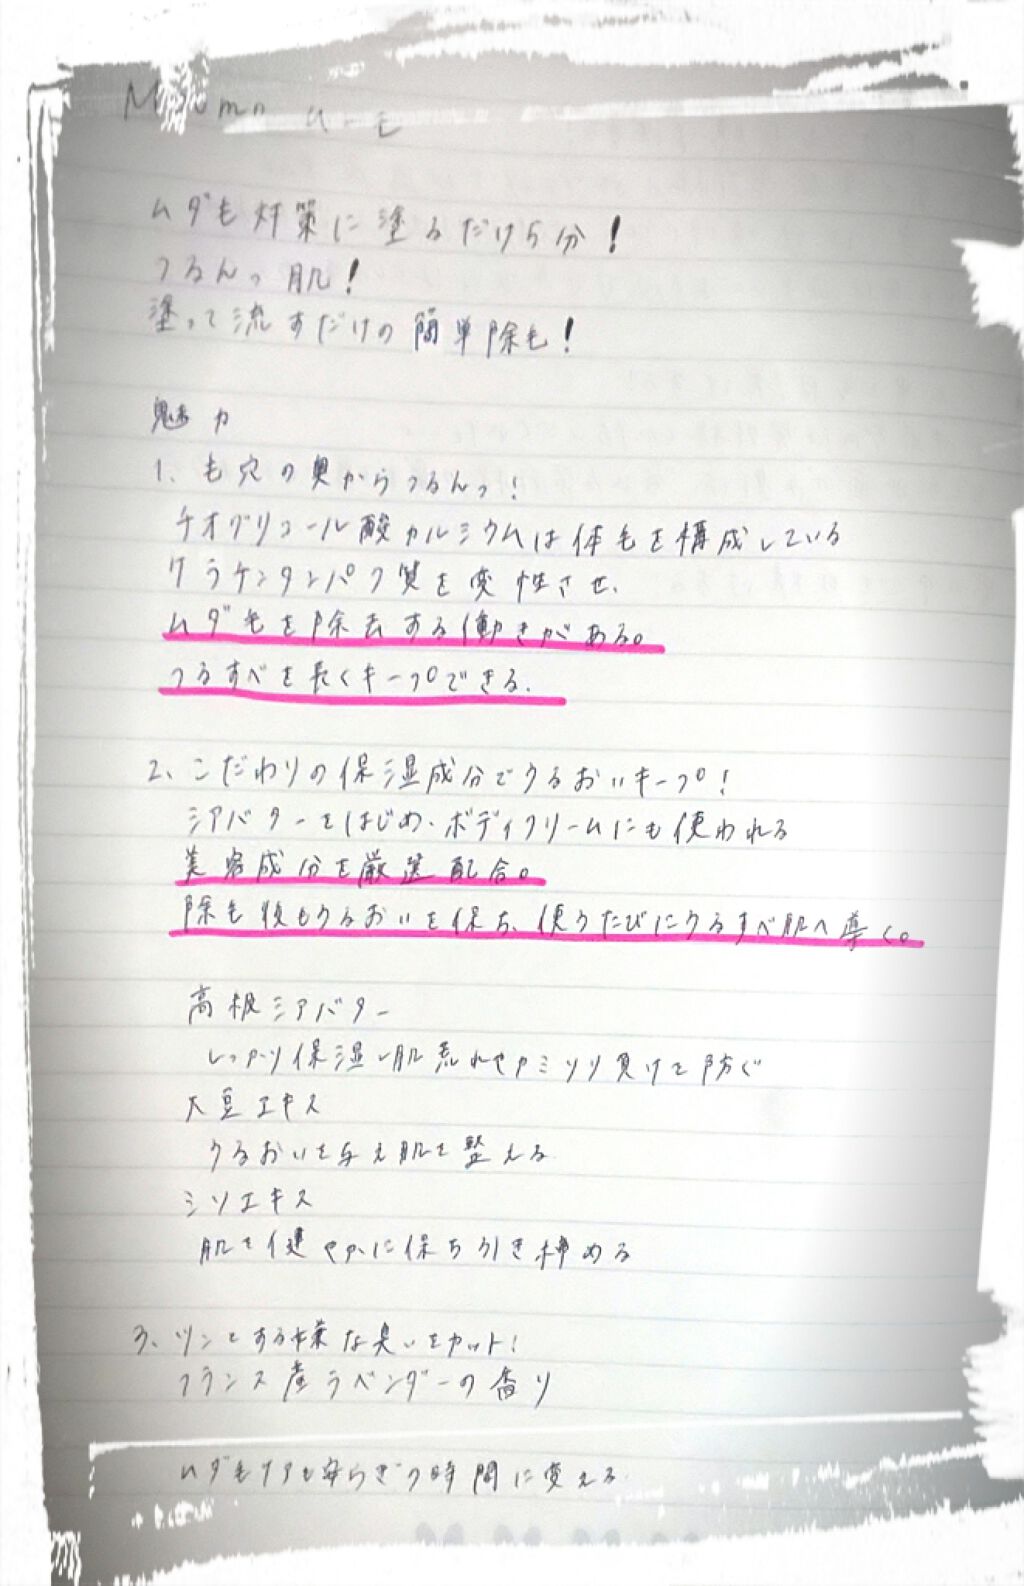 ムーモ
ムダも対策に塗るだけ5分!
つるんっ肌!
塗って流すだけの簡単除毛!
魅力
1、も穴の奥からつるんっ!
チオグリコール酸カルシウムは体毛を構成している
ケラチンタンパク質を変性させ、
ムダ毛を除去する働きがある。
つるすべを長くキープできる.
2、こだわりの保湿成分でうるおいキープ!
シアバターをはじめ、ボディクリームにも使われる
美容成分を厳選配合。
除毛後もうるおいを保ち、使うたびにうるすべ肌へ導く。
高根シアバター
しっかり保湿し肌荒れやカミソリ負けを防ぐ
大豆エキス
うるおいを与え肌を整える
シソエキス
肌を健やかに保ち引き締める
3、ツンとする嫌な臭いをカット!
フランス産ラベンダーの香り
ムダ毛ケアも安らぎの時間に変える